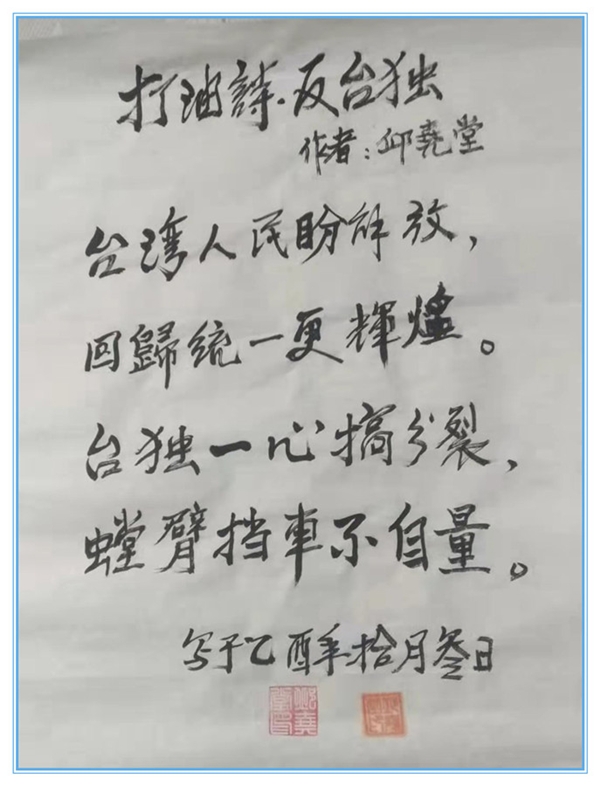 打油詩·反台独
作者：邱尭堂
台湾人民盼解放，
回歸统一更輝煌。
台独一心搞分裂，
螳臂挡車不自量。
写于乙酉年拾月叁日